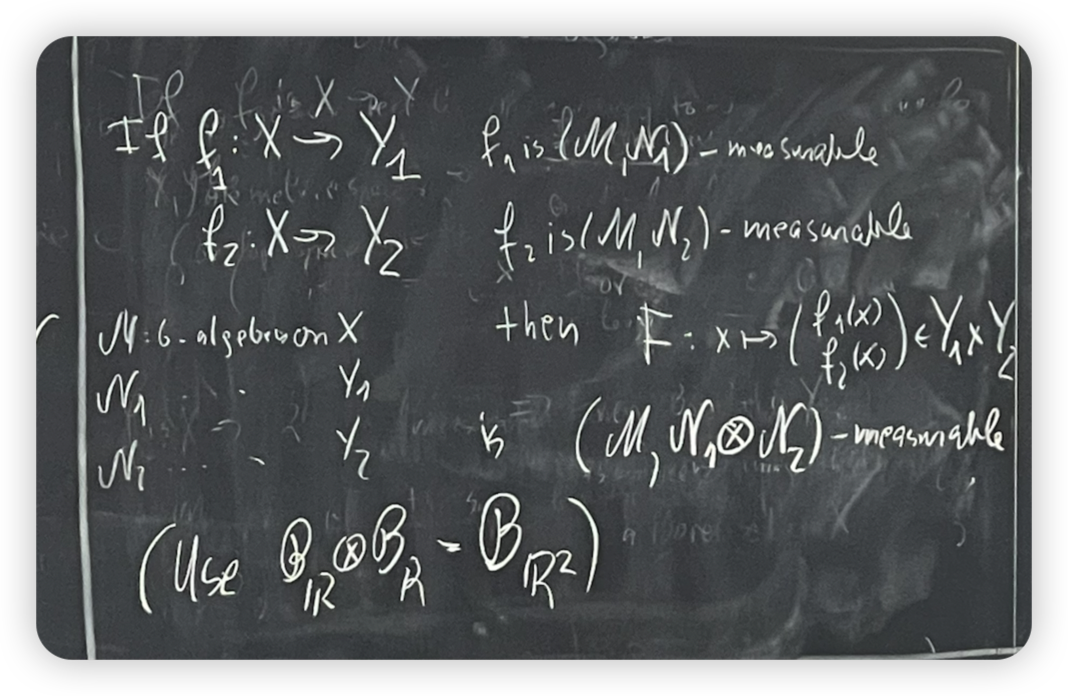 If f₁: X → Y₁ f₁ is (M, N₁) - measurable
f₂: X → Y₂ f₂ is (M, N₂) - measurable
M: σ-algebra on X then F: x ↦ (f₁(x) f₂(x)) ∈ Y₁ × Y₂
N₁ · · Y₁
N₂ ... · Y₂ is (M, N₁ ⊗ N₂) - measurable
(Use B_ℝ ⊗ B_ℝ = B_ℝ²)